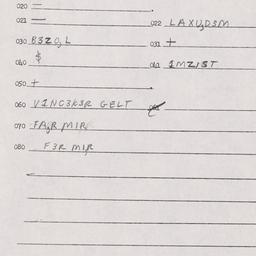 020 =
021 —
022 LAXU,D3M
030 B3ZO,L 031 +
040 $ 041 1MZ13T
050 +
060 V1NC3K3R GELT
070 FA,R MIR
080 F3R MIR